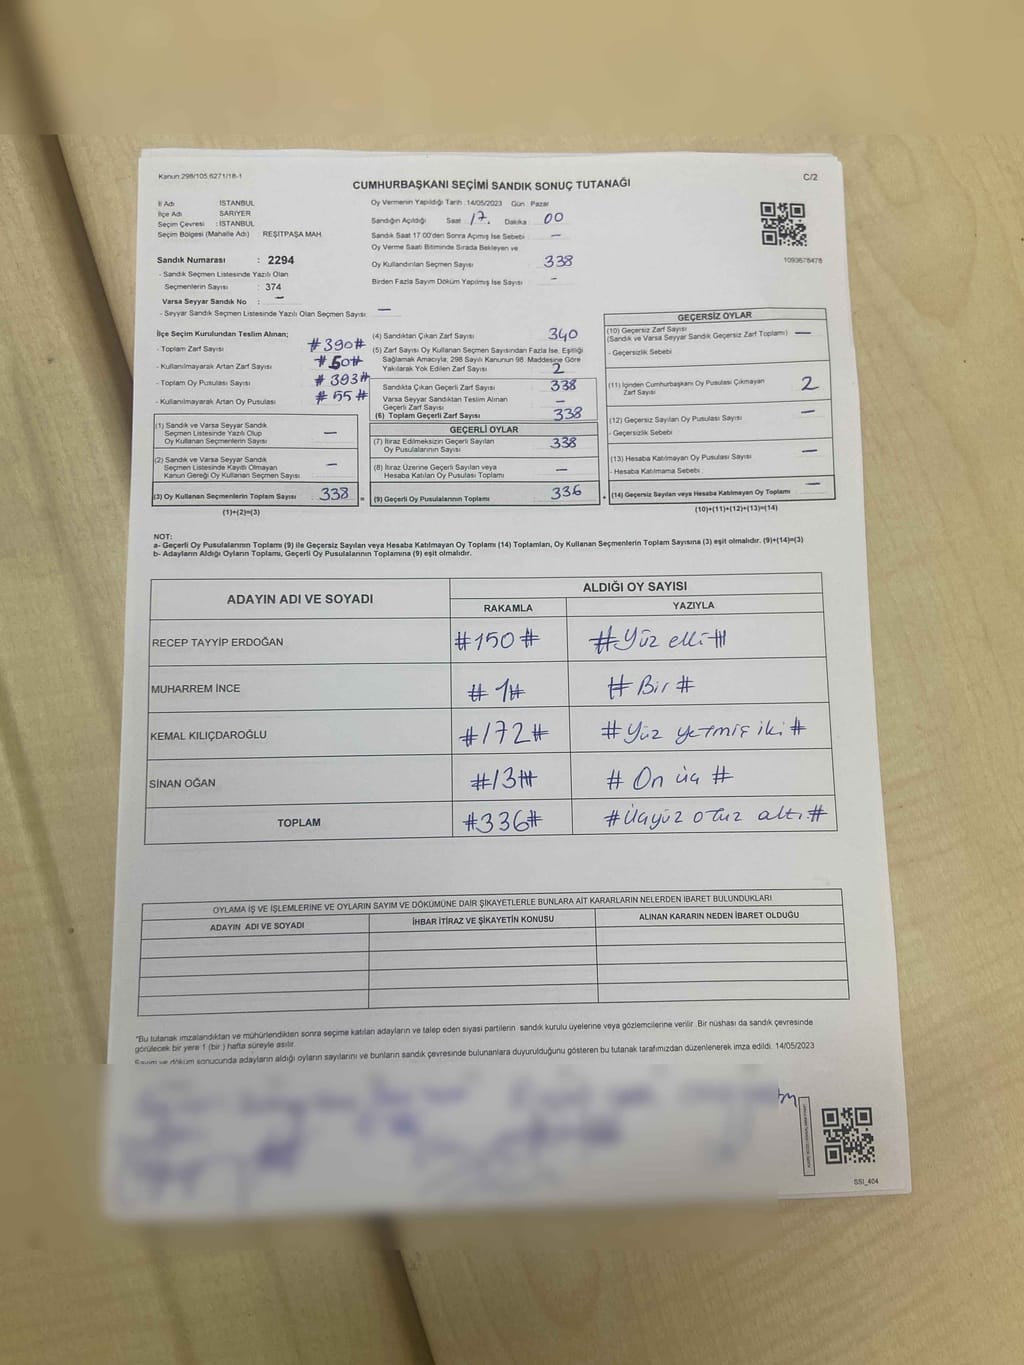 Kanun:298/105.6271/18-1
C/2
CUMHURBAŞKANI SEÇİMİ SANDIK SONUÇ TUTANAĞI
İl Adı İSTANBUL
İlçe Adı SARIYER
Seçim Çevresi : İSTANBUL
Seçim Bölgesi (Mahalle Adı) : REŞİTPAŞA MAH.
Oy Vermenin Yapıldığı Tarih :14/05/2023 Gün : Pazar
Sandığın Açıldığı Saat : 17. Dakika : 00
Sandık Saat 17:00'den Sonra Açılmış İse Sebebi : —
Oy Verme Saati Bitiminde Sırada Bekleyen ve
Oy Kullandırılan Seçmen Sayısı 338
Birden Fazla Sayım Döküm Yapılmış İse Sayısı -
1093678478
Sandık Numarası : 2294
- Sandık Seçmen Listesinde Yazılı Olan
Seçmenlerin Sayısı : 374
Varsa Seyyar Sandık No : —
- Seyyar Sandık Seçmen Listesinde Yazılı Olan Seçmen Sayısı —
İlçe Seçim Kurulundan Teslim Alınan;
- Toplam Zarf Sayısı #390#
- Kullanılmayarak Artan Zarf Sayısı #50#
- Toplam Oy Pusulası Sayısı #393#
- Kullanılmayarak Artan Oy Pusulası #55#
(1) Sandık ve Varsa Seyyar Sandık
Seçmen Listesinde Yazılı Olup
Oy Kullanan Seçmenlerin Sayısı —
(2) Sandık ve Varsa Seyyar Sandık
Seçmen Listesinde Kayıtlı Olmayan
Kanun Gereği Oy Kullanan Seçmen Sayısı —
(3) Oy Kullanan Seçmenlerin Toplam Sayısı 338 =
(1)+(2)=(3)
(4) Sandıktan Çıkan Zarf Sayısı 340
(5) Zarf Sayısı Oy Kullanan Seçmen Sayısından Fazla İse, Eşitliği
Sağlamak Amacıyla; 298 Sayılı Kanunun 98. Maddesine Göre
Yakılarak Yok Edilen Zarf Sayısı 2
Sandıkta Çıkan Geçerli Zarf Sayısı 338
Varsa Seyyar Sandıktan Teslim Alınan
Geçerli Zarf Sayısı —
(6) Toplam Geçerli Zarf Sayısı 338
GEÇERLİ OYLAR
(7) İtiraz Edilmeksizin Geçerli Sayılan
Oy Pusulalarının Sayısı 338
(8) İtiraz Üzerine Geçerli Sayılan veya
Hesaba Katılan Oy Pusulası Toplamı —
(9) Geçerli Oy Pusulalarının Toplamı 336 +
GEÇERSİZ OYLAR
(10) Geçersiz Zarf Sayısı
(Sandık ve Varsa Seyyar Sandık Geçersiz Zarf Toplamı) —
- Geçersizlik Sebebi
(11) İçinden Cumhurbaşkanı Oy Pusulası Çıkmayan
Zarf Sayısı 2
(12) Geçersiz Sayılan Oy Pusulası Sayısı —
- Geçersizlik Sebebi
(13) Hesaba Katılmayan Oy Pusulası Sayısı —
- Hesaba Katılmama Sebebi :
(14) Geçersiz Sayılan veya Hesaba Katılmayan Oy Toplamı —
(10)+(11)+(12)+(13)=(14)
NOT:
a- Geçerli Oy Pusulalarının Toplamı (9) ile Geçersiz Sayılan veya Hesaba Katılmayan Oy Toplamı (14) Toplamları, Oy Kullanan Seçmenlerin Toplam Sayısına (3) eşit olmalıdır. (9)+(14)=(3)
b- Adayların Aldığı Oyların Toplamı, Geçerli Oy Pusulalarının Toplamına (9) eşit olmalıdır.
ADAYIN ADI VE SOYADI
ALDIĞI OY SAYISI
RAKAMLA YAZIYLA
RECEP TAYYİP ERDOĞAN #150# #Yüz elli#
MUHARREM İNCE #1# #Bir#
KEMAL KILIÇDAROĞLU #172# #Yüz yetmiş iki#
SİNAN OĞAN #13# #On üç#
TOPLAM #336# #Üçyüz otuz altı#
OYLAMA İŞ VE İŞLEMLERİNE VE OYLARIN SAYIM VE DÖKÜMÜNE DAİR ŞİKAYETLERLE BUNLARA AİT KARARLARIN NELERDEN İBARET BULUNDUKLARI
ADAYIN ADI VE SOYADI İHBAR İTİRAZ VE ŞİKAYETİN KONUSU ALINAN KARARIN NEDEN İBARET OLDUĞU
*Bu tutanak imzalandıktan ve mühürlendikten sonra seçime katılan adayların ve talep eden siyasi partilerin sandık kurulu üyelerine veya gözlemcilerine verilir. Bir nüshası da sandık çevresinde
görülecek bir yere 1 (bir ) hafta süreyle asılır.
Sayım ve döküm sonucunda adayların aldığı oyların sayılarını ve bunların sandık çevresinde bulunanlara duyurulduğunu gösteren bu tutanak tarafımızdan düzenlenerek imza edildi. 14/05/2023
SSI_404